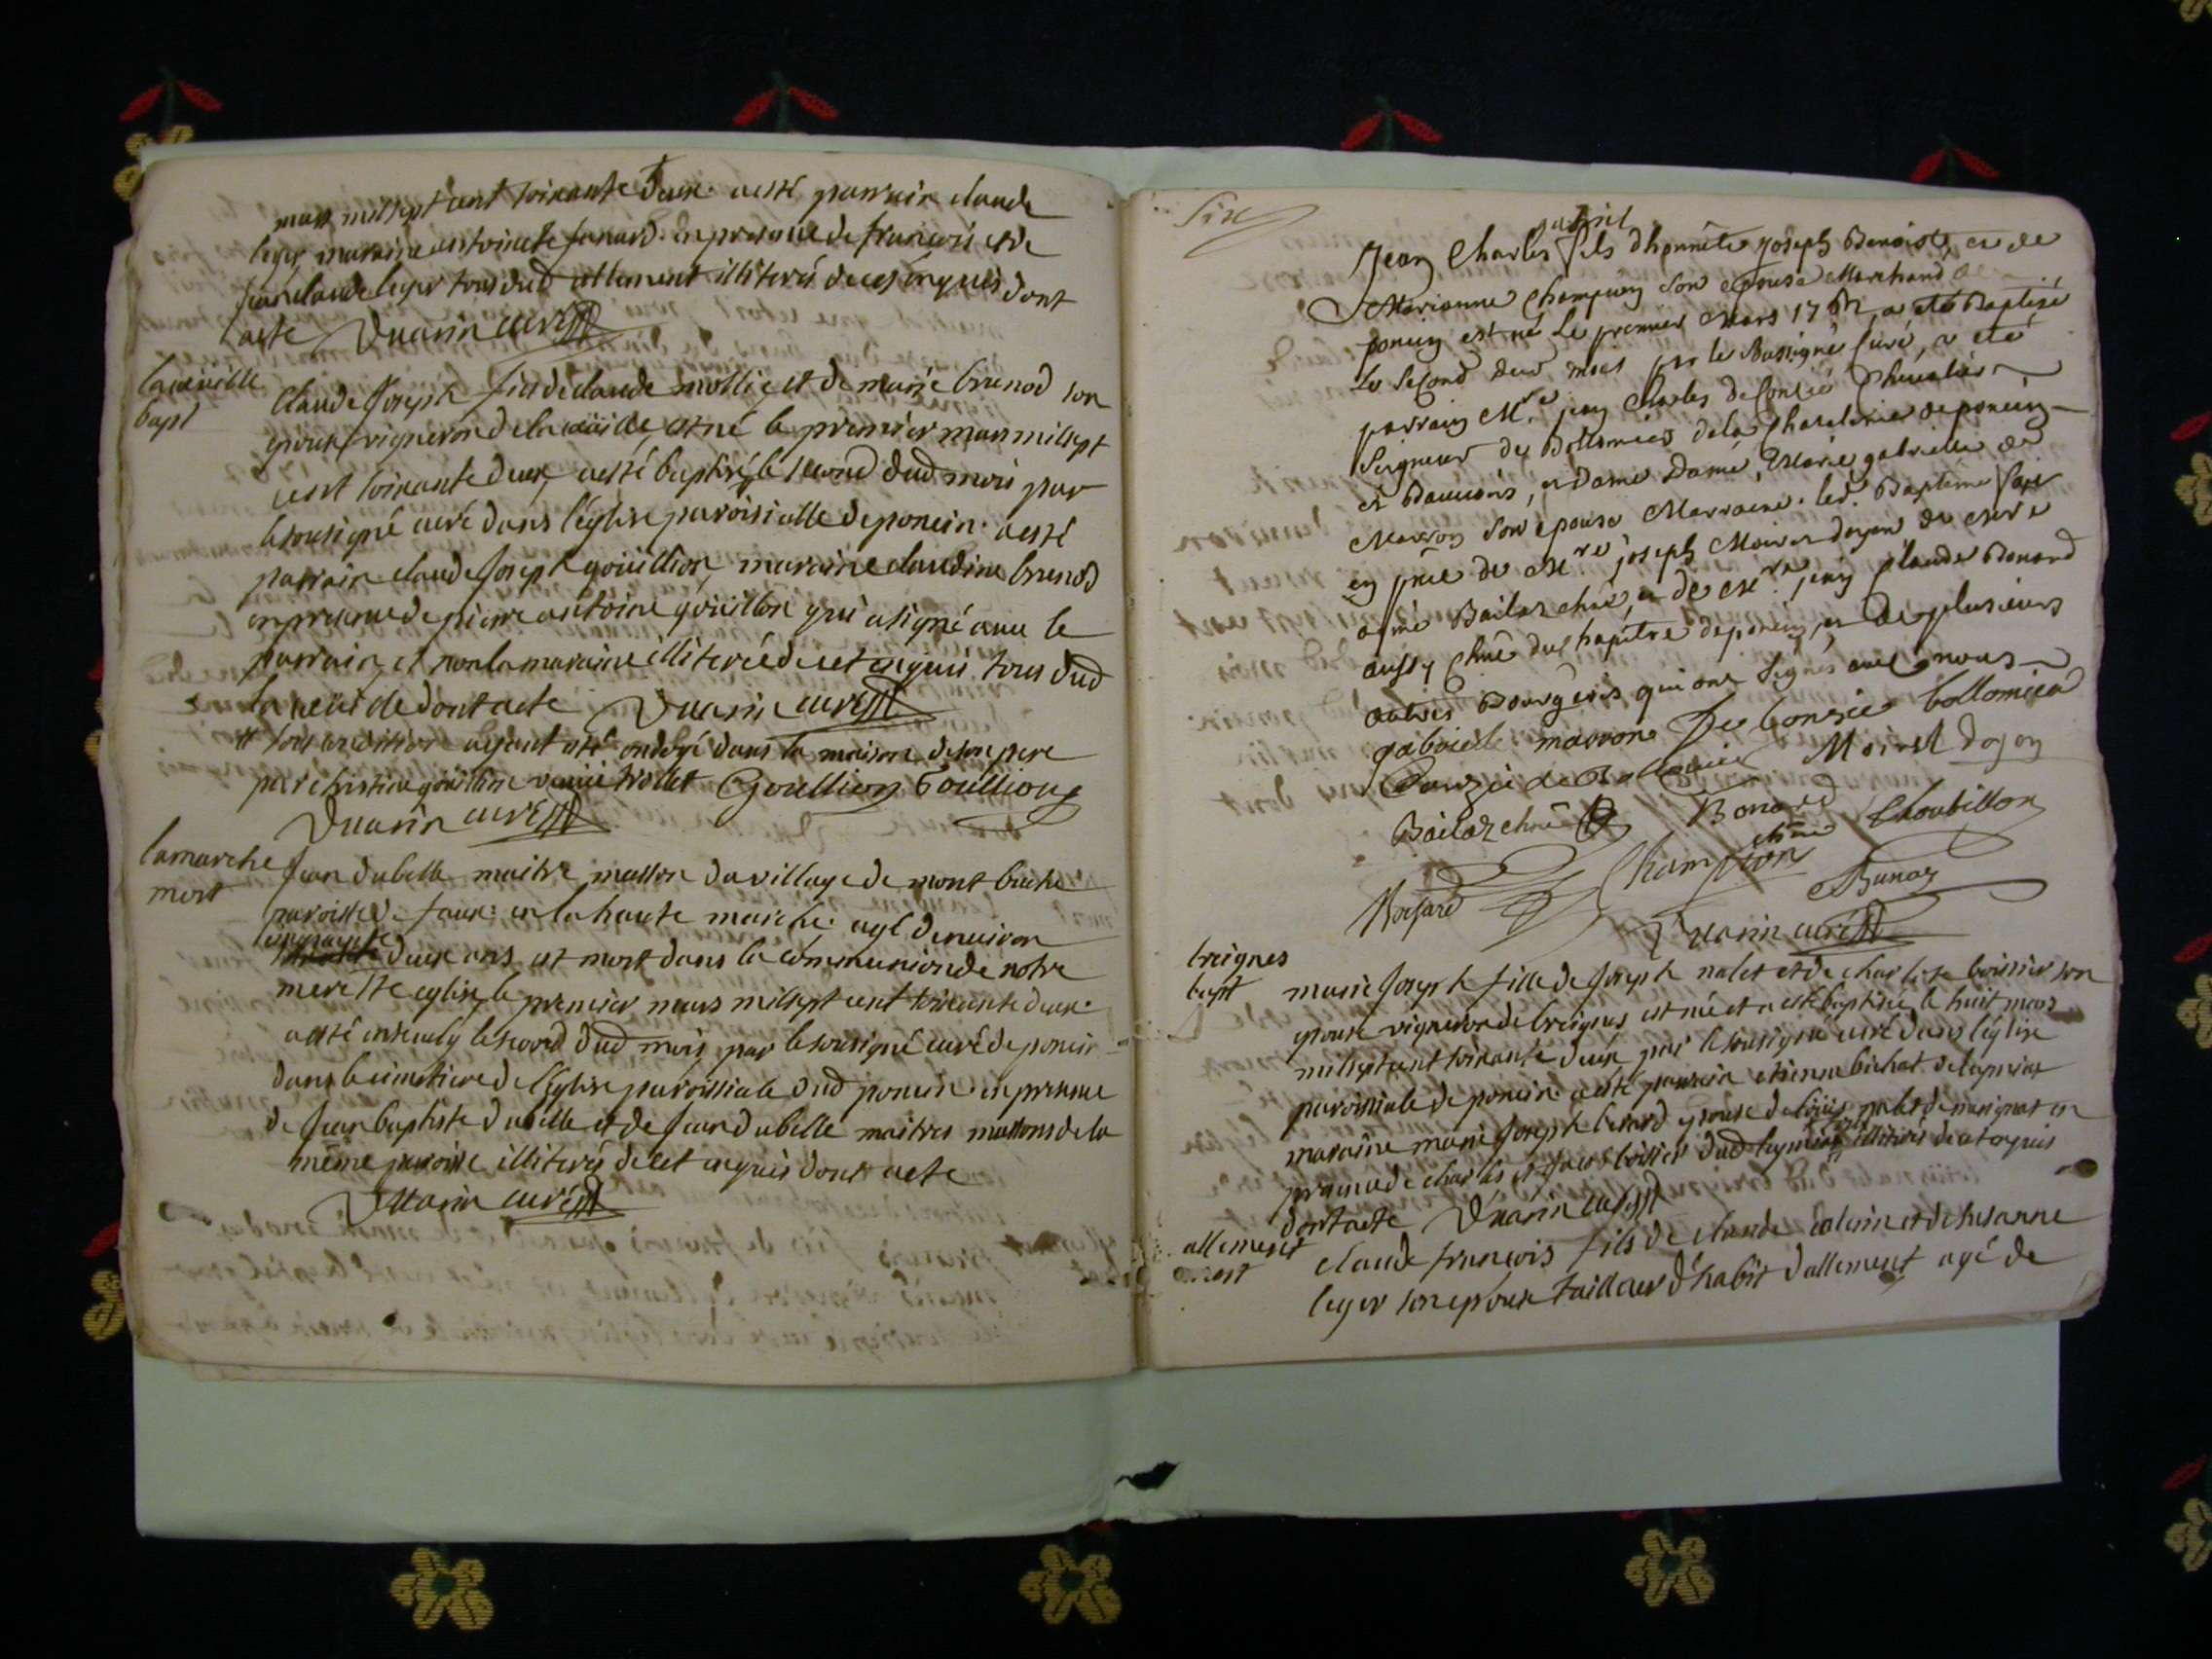 mars mil sept cent soixante deux. a esté parrain claude
leger maraine antoinete junard. en presence de francois et de
jean claude leger tous dud allement illiterés de ces enquis dont
acte Duarin curé
bapt
Claude Joseph fils de claude mollie et de marie brunod son
epouse vigneron de la est né le premier mars mil sept
cent soixante deux, a esté baptisé le second dud mois par
le sousigné curé dans l'eglise paroissialle de poncin. a esté
parrain claude Joseph goüillion, maraine claudine brunod
en presence de pierre antoine goüillon qui a signé avec le
parrain, et non la maraine illiterée de cet enquis tous dud
la dont acte Duarin curé
sous condition ayant eté ondoyé dans la maison de son pere
par christine Goullion Goullion
Duarin curé
lamarche
mort
Jean dubelle maitre masson du village de mont
paroisse de faux en la haute marche. agé d'environ
deux ans est mort dans la communion de notre
mere ste eglise, le premier mars mil sept cent soixante deux.
a esté le second dud mois par le sousigné curé de poncin
dans le cimetiere de l'eglise paroissiale dud poncin en presence
de Jean baptiste dubelle et de Jean dubelle maitres massons de la
même paroisse illiterés de cet enquis dont acte
Duarin curé
Six
Jean Charles fils d'honnête joseph Benoist, et de
Marianne Champion son epouse Marchand de
poncin est né le premier Mars 1762, a eté Baptisé
le second dud mois par le Sussigné Curé, a eté
parrain Mre jean Charles de Conzié Chevalier
Seigneur de Bollomier de la Chatelenie de poncin
et, et Dame Dame, Marie gabrielle de
Marron son epouse Marraine. led. Baptême fait
en pnce de Mre joseph Moiret doyen de Mre
aimé Bailat chne, et de Mre jean claude Bonard
aussy Chne du Chapitre de poncin, et de plusieurs
autres Bourgeois qui ont signés avec nous
gabrielle marron De Conzié bollomier
Conzié de Moiret doyen
Bailat chne Bonard chne Choubillon
Champion
Duarin curé
breignes
bapt
marie Joseph fille de Joseph nalet et de charlote boissier son
epouse vigneron de breignes est née et a esté baptisée le huit mars
mil sept cent soixante deux par le sousigné curé dans l'eglise
paroissiale de poncin. a esté parrain etienne bichat de
maraine marie Joseph berard epouse de loüis nalet de en
presence de charles et boissier dud illiterés de cet enquis
dont acte Duarin curé
allement
mort
claude francois fils de claude et de susanne
leger son epouse tailleur d'habit d'allement agé de